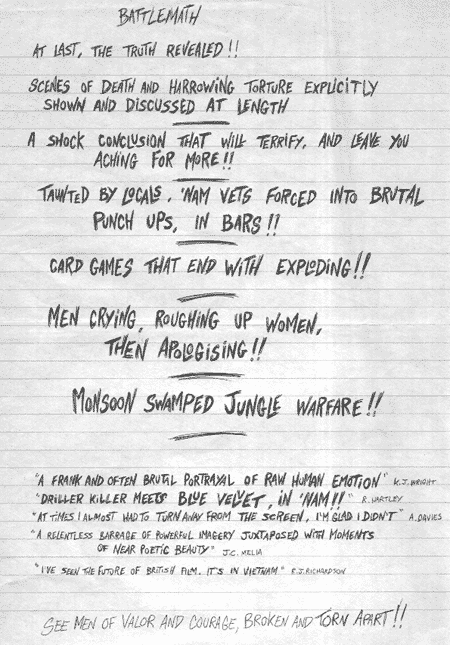 BATTLEMATH
AT LAST, THE TRUTH REVEALED!!
SCENES OF DEATH AND HARROWING TORTURE EXPLICITLY
SHOWN AND DISCUSSED AT LENGTH
A SHOCK CONCLUSION THAT WILL TERRIFY, AND LEAVE YOU
ACHING FOR MORE!!
TAUNTED BY LOCALS, 'NAM VETS FORCED INTO BRUTAL
PUNCH UPS, IN BARS!!
CARD GAMES THAT END WITH EXPLODING!!
MEN CRYING, ROUGHING UP WOMEN,
THEN APOLOGISING!!
MONSOON SWAMPED JUNGLE WARFARE!!
"A FRANK AND OFTEN BRUTAL PORTRAYAL OF RAW HUMAN EMOTION" K.J. WRIGHT
"DRILLER KILLER MEETS BLUE VELVET, IN 'NAM!!" R. HARTLEY
"AT TIMES I ALMOST HAD TO TURN AWAY FROM THE SCREEN, I'M GLAD I DIDN'T" A. DAVIES
"A RELENTLESS BARRAGE OF POWERFUL IMAGERY JUXTAPOSED WITH MOMENTS
OF NEAR POETIC BEAUTY" J.C. MELIA
"I'VE SEEN THE FUTURE OF BRITISH FILM. IT'S IN VIETNAM" R.J. RICHARDSON
SEE MEN OF VALOR AND COURAGE, BROKEN AND TORN APART!!